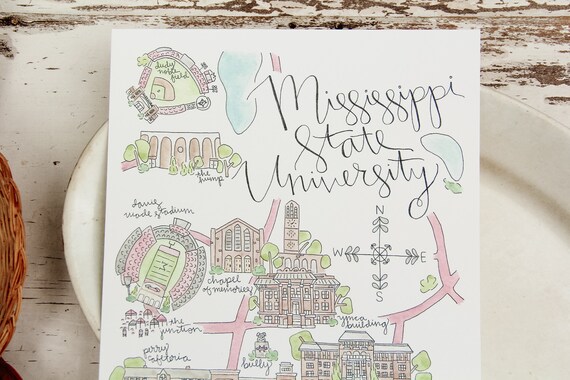 dudy
noble
field
Mississippi
State
University
the
hump
davis
wade stadium
N
W E
S
chapel
of memories
the
junction
ymca
building
perry
cafeteria
bully